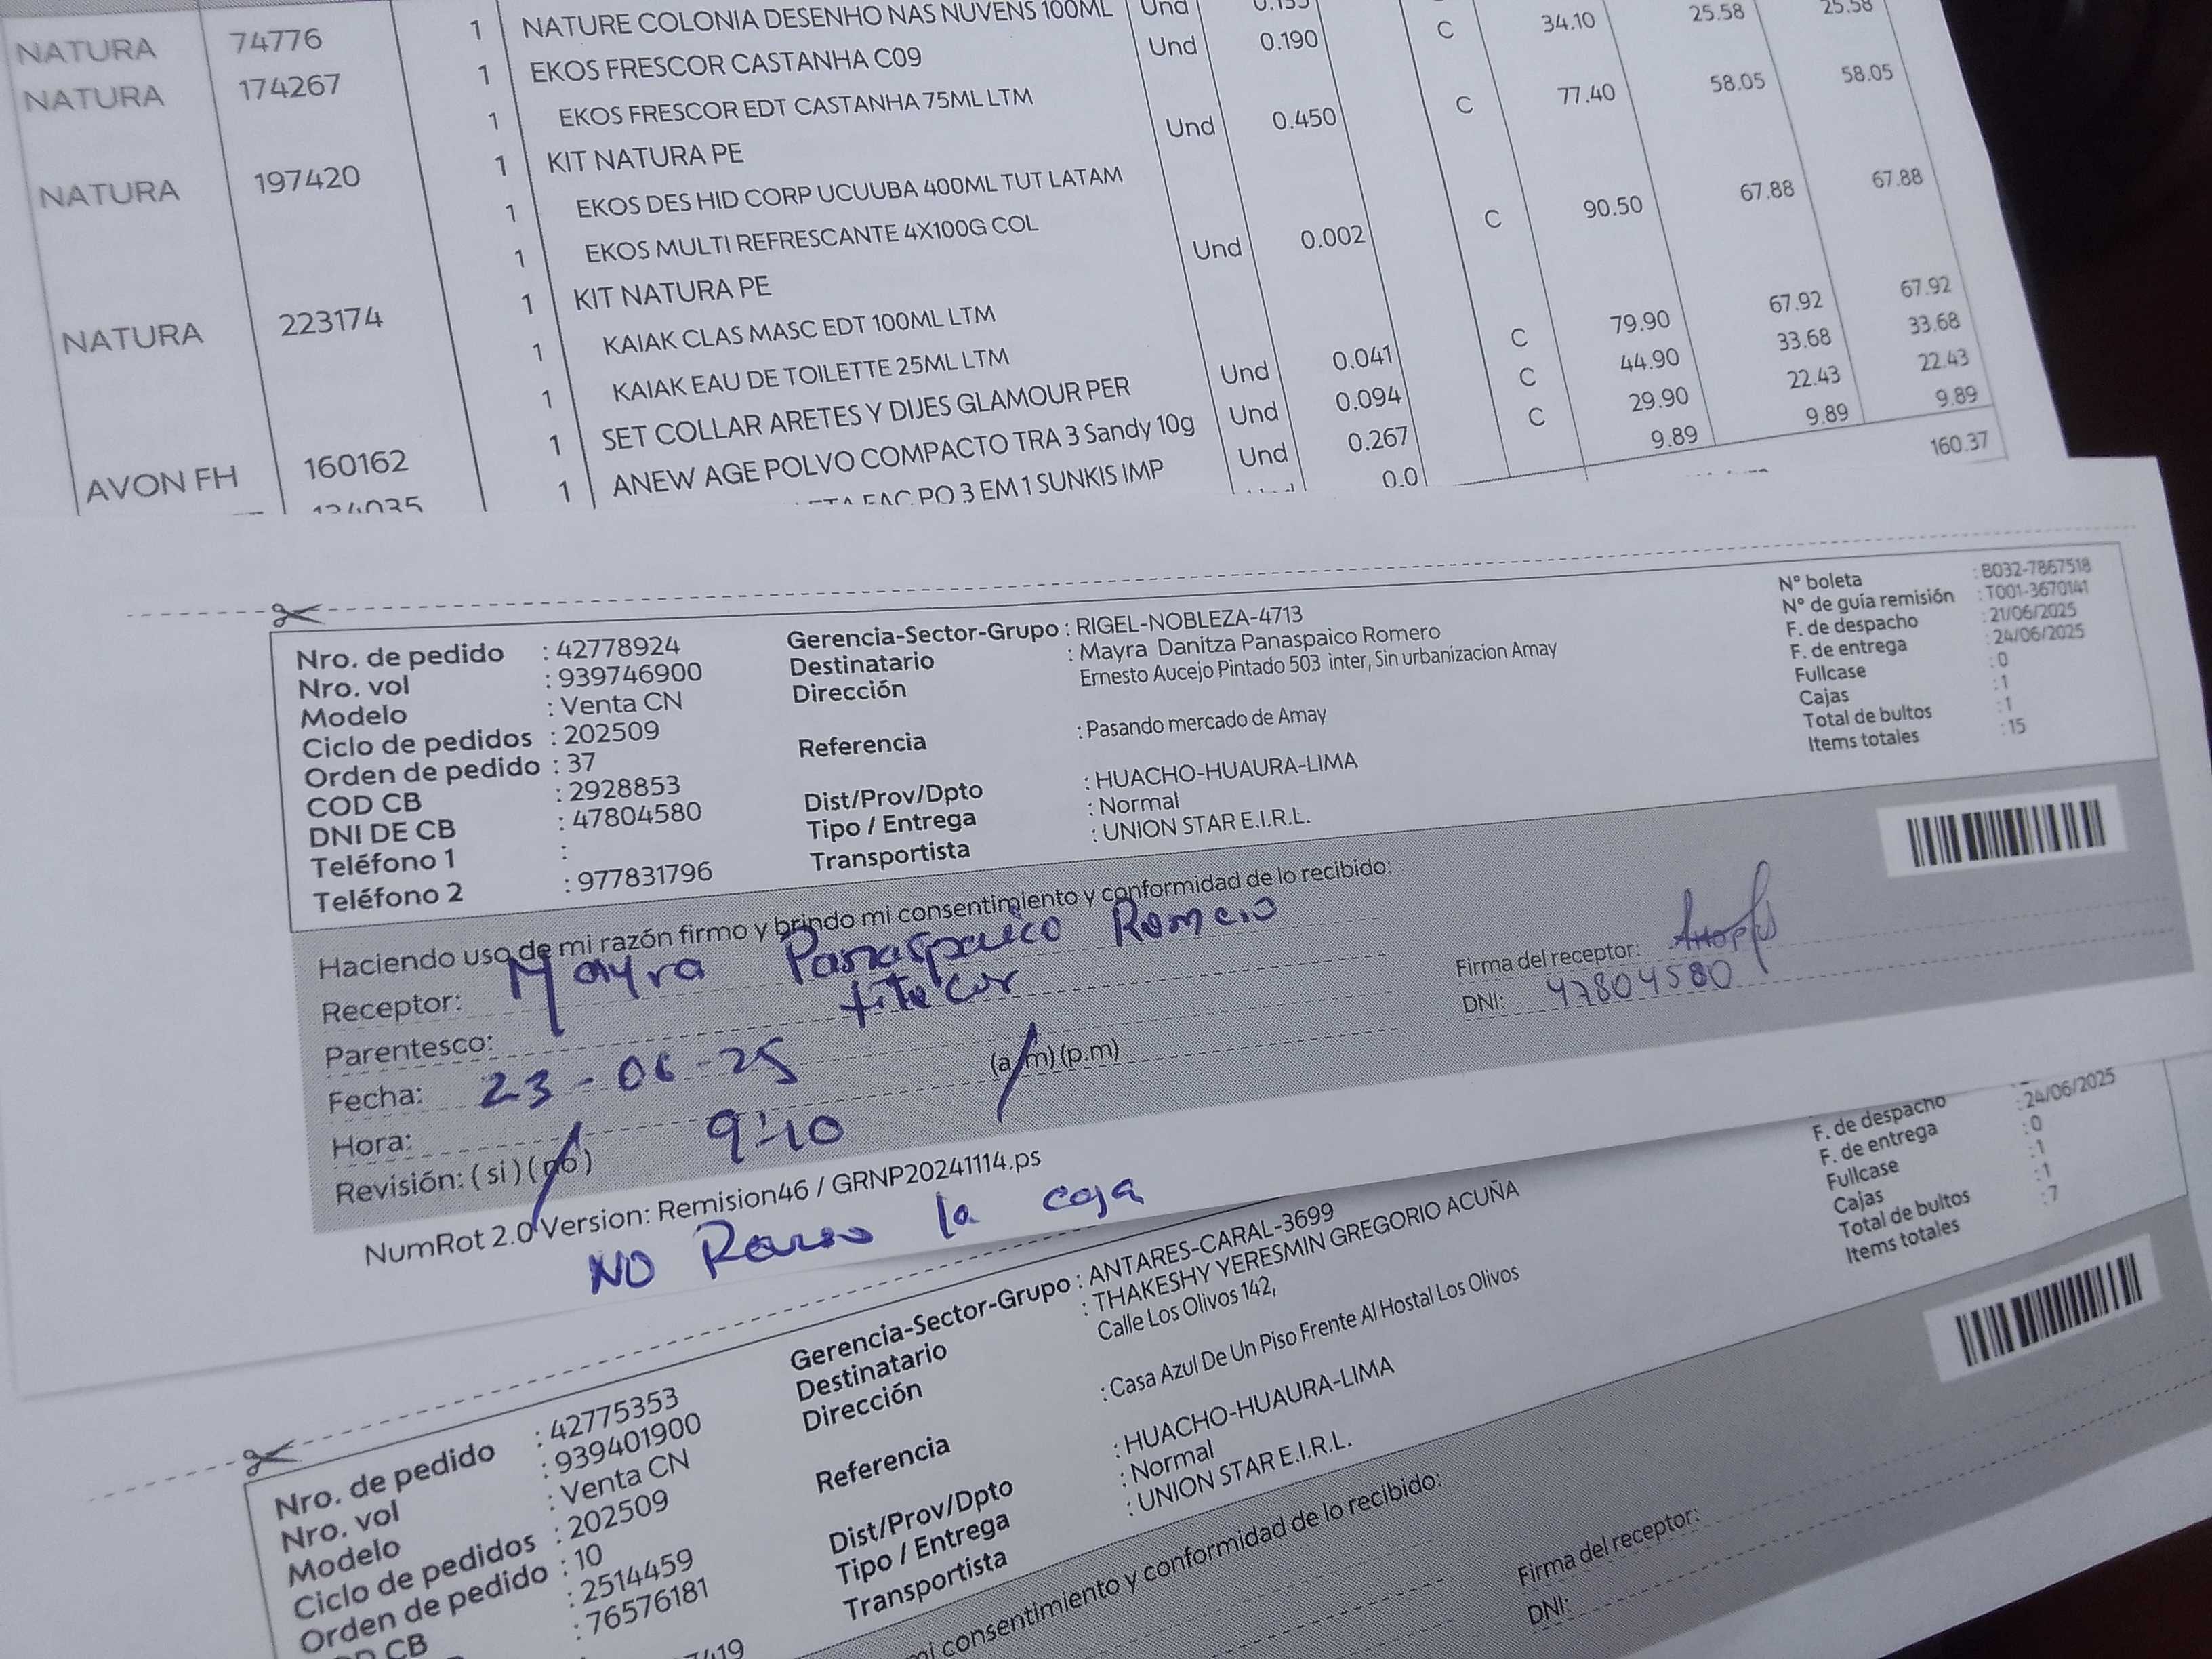 NATURA 74776 1 NATURE COLONIA DESENHO NAS NUVENS 100ML Und 34.10 25.58 25.58
NATURA 174267 1 EKOS FRESCOR CASTANHA C09 Und 0.190 C 77.40 58.05 58.05
1 EKOS FRESCOR EDT CASTANHA 75ML LTM
NATURA 197420 1 KIT NATURA PE Und 0.450 C 90.50 67.88 67.88
1 EKOS DES HID CORP UCUUBA 400ML TUT LATAM
1 EKOS MULTI REFRESCANTE 4X100G COL
NATURA 223174 1 KIT NATURA PE Und 0.002 C 79.90 67.92 67.92
1 KAIAK CLAS MASC EDT 100ML LTM
1 KAIAK EAU DE TOILETTE 25ML LTM
AVON FH 160162 1 SET COLLAR ARETES Y DIJES GLAMOUR PER Und 0.041 C 44.90 33.68 33.68
1 ANEW AGE POLVO COMPACTO TRA 3 Sandy 10g Und 0.094 C 29.90 22.43 22.43
PO 3 EM 1 SUNKIS IMP Und 0.267 C 9.89 9.89 9.89
0.0 160.37
Nro. de pedido : 42778924
Nro. vol : 939746900
Modelo : Venta CN
Ciclo de pedidos : 202509
Orden de pedido : 37
COD CB : 2928853
DNI DE CB : 47804580
Teléfono 1 :
Teléfono 2 : 977831796
Gerencia-Sector-Grupo : RIGEL-NOBLEZA-4713
Destinatario : Mayra Danitza Panaspaico Romero
Dirección Ernesto Aucejo Pintado 503 inter, Sin urbanizacion Amay
Referencia : Pasando mercado de Amay
Dist/Prov/Dpto : HUACHO-HUAURA-LIMA
Tipo / Entrega : Normal
Transportista : UNION STAR E.I.R.L.
N° boleta : B032-7867518
N° de guía remisión : T001-3670141
F. de despacho : 21/06/2025
F. de entrega : 24/06/2025
Fullcase : 0
Cajas : 1
Total de bultos : 1
Items totales : 15
Haciendo uso de mi razón firmo y brindo mi consentimiento y conformidad de lo recibido:
Receptor: Mayra Panaspaico Romero
Parentesco: titular
Fecha: 23-06-25
Hora: 9:10 (a.m) (p.m)
Revisión: (si) (no)
Firma del receptor:
DNI: 47804580
NumRot 2.0 Version: Remision46 / GRNP20241114.ps
NO la caja
Nro. de pedido : 42775353
Nro. vol : 939401900
Modelo : Venta CN
Ciclo de pedidos : 202509
Orden de pedido : 10
COD CB : 2514459
: 76576181
Gerencia-Sector-Grupo : ANTARES-CARAL-3699
Destinatario : THAKESHY YERESMIN GREGORIO ACUÑA
Dirección Calle Los Olivos 142,
Referencia : Casa Azul De Un Piso Frente Al Hostal Los Olivos
Dist/Prov/Dpto : HUACHO-HUAURA-LIMA
Tipo / Entrega : Normal
Transportista : UNION STAR E.I.R.L.
F. de despacho
F. de entrega : 24/06/2025
Fullcase : 0
Cajas : 1
Total de bultos : 1
Items totales : 7
consentimiento y conformidad de lo recibido:
Firma del receptor:
DNI: